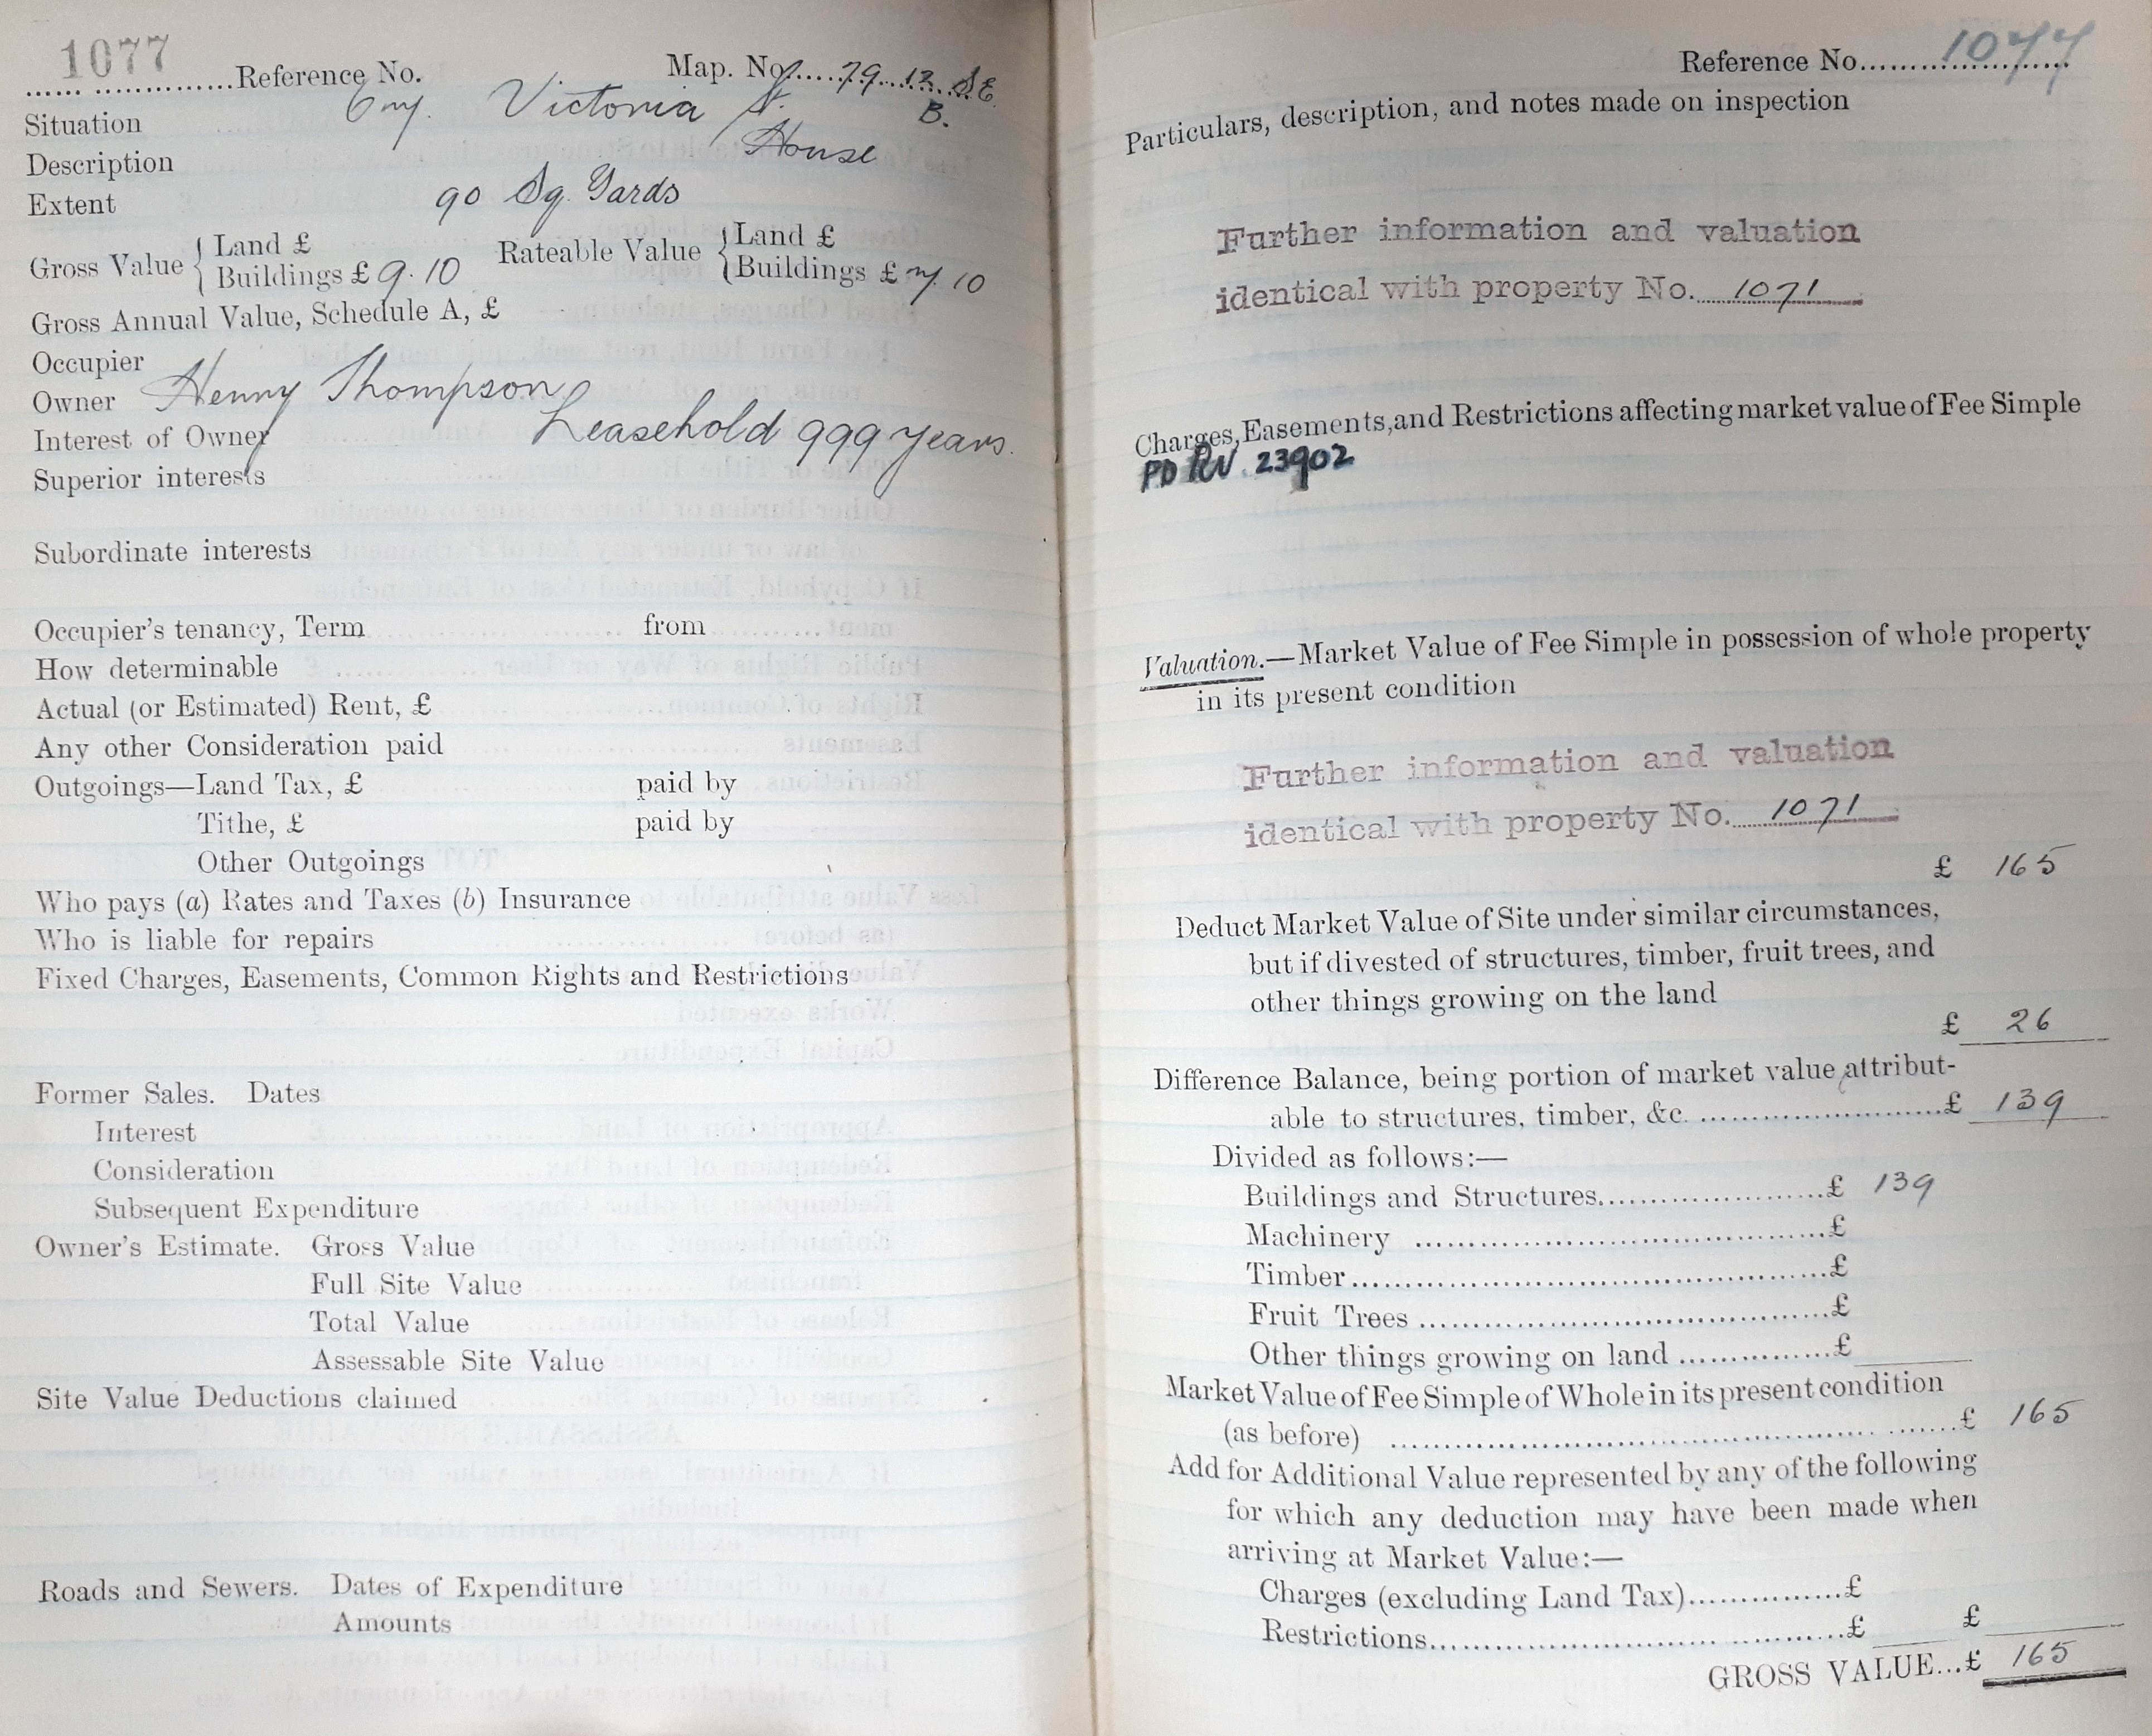 1077 Reference No. Map. No. 79.12 SE
B.
Situation Victoria St.
Description House
Extent 90 Sq. Yards
Gross Value { Land £ Rateable Value { Land £
Buildings £ 9.10 Buildings £ 7.10
Gross Annual Value, Schedule A, £
Occupier
Owner Henry Thompson
Interest of Owner Leasehold 999 years.
Superior interests
Subordinate interests
Occupier's tenancy, Term from
How determinable
Actual (or Estimated) Rent, £
Any other Consideration paid
Outgoings—Land Tax, £ paid by
Tithe, £ paid by
Other Outgoings
Who pays (a) Rates and Taxes (b) Insurance
Who is liable for repairs
Fixed Charges, Easements, Common Rights and Restrictions
Former Sales. Dates
Interest
Consideration
Subsequent Expenditure
Owner's Estimate. Gross Value
Full Site Value
Total Value
Assessable Site Value
Site Value Deductions claimed
Roads and Sewers. Dates of Expenditure
Amounts
Reference No. 1077
Particulars, description, and notes made on inspection
Further information and valuation
identical with property No. 1071
Charges, Easements, and Restrictions affecting market value of Fee Simple
PD RV. 23902
Valuation.—Market Value of Fee Simple in possession of whole property
in its present condition
Further information and valuation
identical with property No. 1071
£ 165
Deduct Market Value of Site under similar circumstances,
but if divested of structures, timber, fruit trees, and
other things growing on the land
£ 26
Difference Balance, being portion of market value attribut-
able to structures, timber, &c. £ 139
Divided as follows:—
Buildings and Structures £ 139
Machinery £
Timber £
Fruit Trees £
Other things growing on land £
Market Value of Fee Simple of Whole in its present condition
(as before) £ 165
Add for Additional Value represented by any of the following
for which any deduction may have been made when
arriving at Market Value:—
Charges (excluding Land Tax) £
Restrictions £ £
GROSS VALUE... £ 165